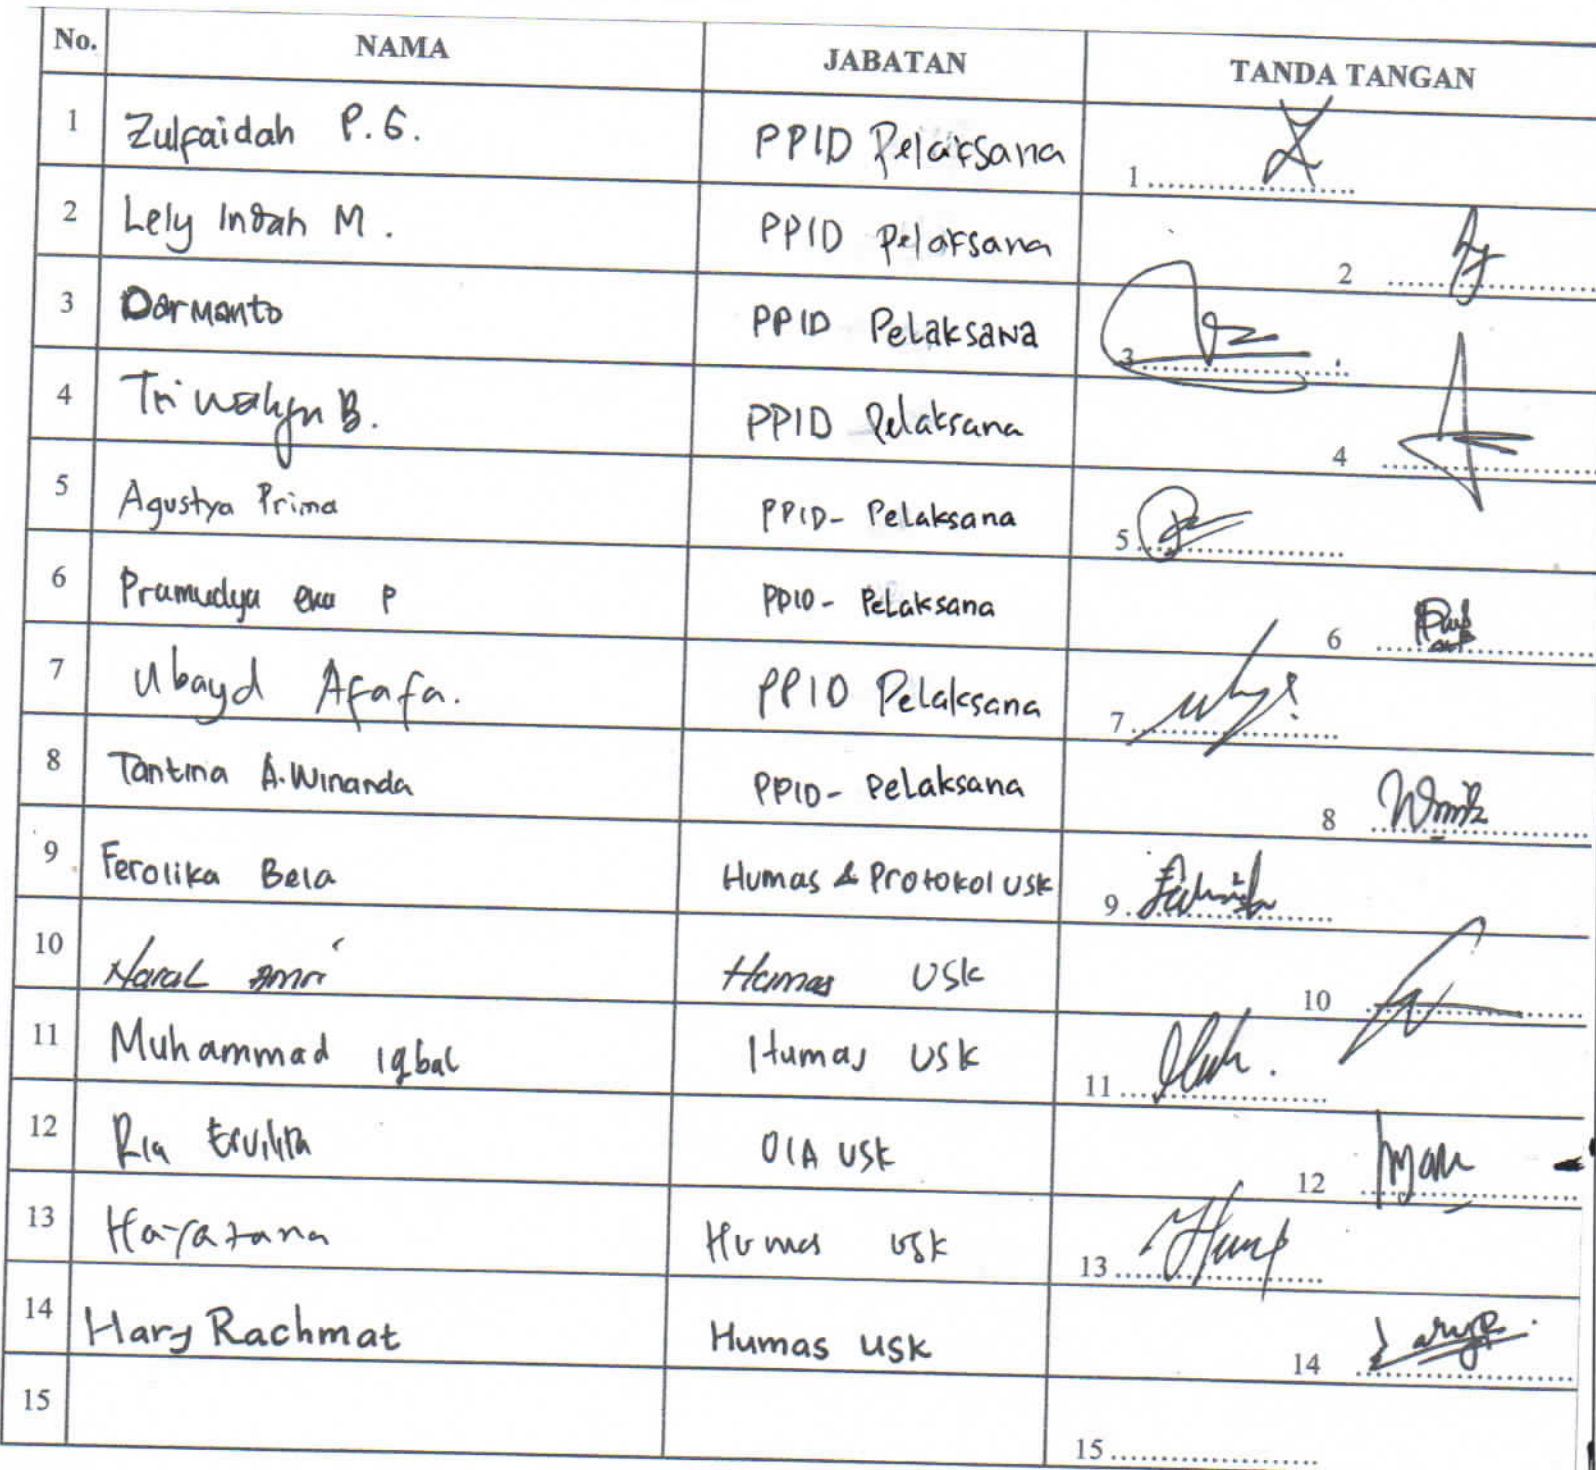 No. NAMA JABATAN TANDA TANGAN
1 Zulfaidah P.G. PPID Pelaksana 1
2 Lely Indah M. PPID Pelaksana 2
3 Darmanto PPID Pelaksana 3
4 Tri Wahyu B. PPID Pelaksana 4
5 Agustya Prima PPID- Pelaksana 5
6 Pramudya eka P PPID- Pelaksana 6
7 Ubayd Afafa. PPID Pelaksana 7
8 Tantina A.Winanda PPID- Pelaksana 8
9 Ferolika Bela Humas & Protokol USK 9
10 Humas USK 10
11 Muhammad iqbal Humas USK 11
12 Ria OIA USK 12
13 Humas USK 13
14 Hary Rachmat Humas USK 14
15 15